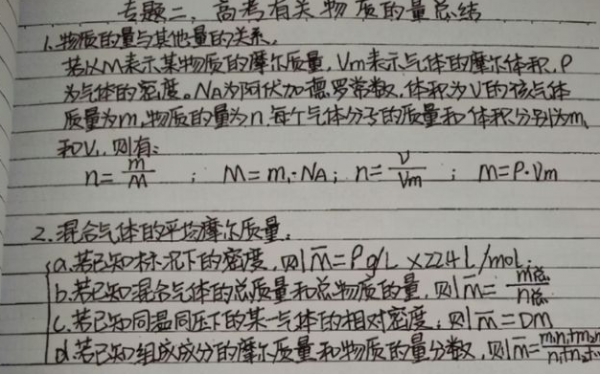 专题二、高考有关物质的量总结
1.物质的量与其他量的关系,
若以M表示某物质的摩尔质量,Vm表示气体的摩尔体积,ρ
为气体的密度。NA为阿伏加德罗常数,体积为V的该气体
质量为m,物质的量为n,每个气体分子的质量和体积分别为m,
和V,则有:
n=m/M ; M=m₁·NA; n=V/Vm ; M=ρ·Vm
2.混合气体的平均摩尔质量:
a.若已知标况下的密度,则M̅=ρg/L×22.4L/mol;
b.若已知混合气体的总质量和总物质的量,则M̅=m总/n总
c.若已知同温同压下的某一气体的相对密度,则M̅=DM
d.若已知组成成分的摩尔质量和物质的量分数,则M̅=